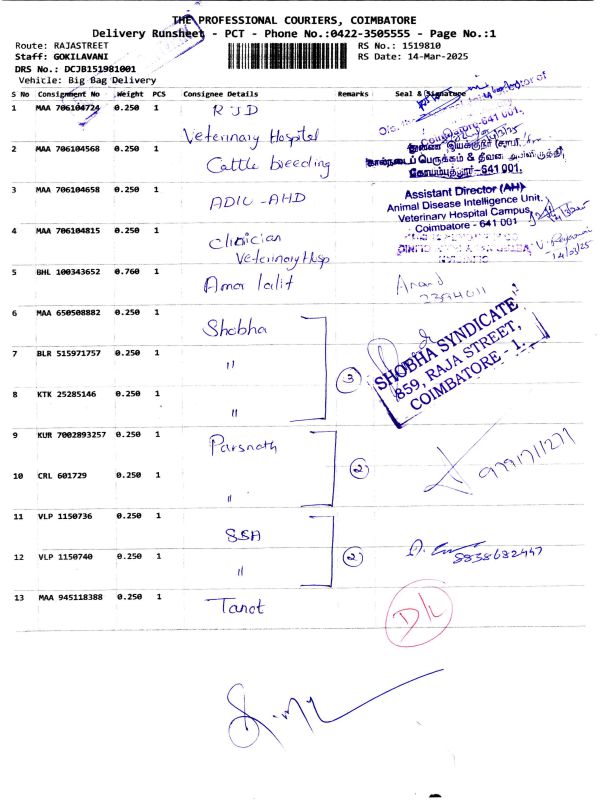 THE PROFESSIONAL COURIERS, COIMBATORE
Delivery Runsheet - PCT - Phone No.:0422-3505555 - Page No.:1
Route: RAJASTREET
RS No.: 1519810
Staff: GOKILAVANI
RS Date: 14-Mar-2025
DRS No.: DCJB151981001
Vehicle: Big Bag Delivery
S No Consignment No Weight PCS Consignee Details Remarks Seal & Signature
1 MAA 706104724 0.250 1 RJD
Veterinary Hospital
2 MAA 706104568 0.250 1 Cattle breeding
கோயமுத்தூர்-641 001.
3 MAA 706104658 0.250 1 ADIU-AHD
Assistant Director (AH)
Animal Disease Intelligence Unit,
Veterinary Hospital Campus,
Coimbatore - 641 001
4 MAA 706104815 0.250 1 Clinician
Veterinary Hosp
14/03/25
5 BHL 100343652 0.760 1 Amar lalit
Anand
6 MAA 650508882 0.250 1 Shobha
7 BLR 515971757 0.250 1 "
3
SHOBHA SYNDICATE
859, RAJA STREET,
COIMBATORE - 1.
8 KTK 25285146 0.250 1 "
9 KUR 7002893257 0.250 1 Parsnath
2
10 CRL 601729 0.250 1 "
11 VLP 1150736 0.250 1 SSA
2
12 VLP 1150740 0.250 1 "
8838682447
13 MAA 945118388 0.250 1 Tanot
D/L